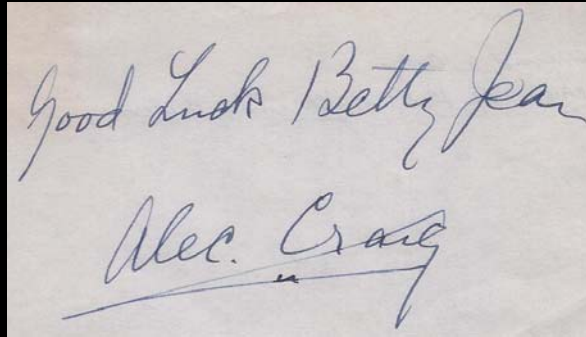 Good Luck Betty Jean
Alec. Craig